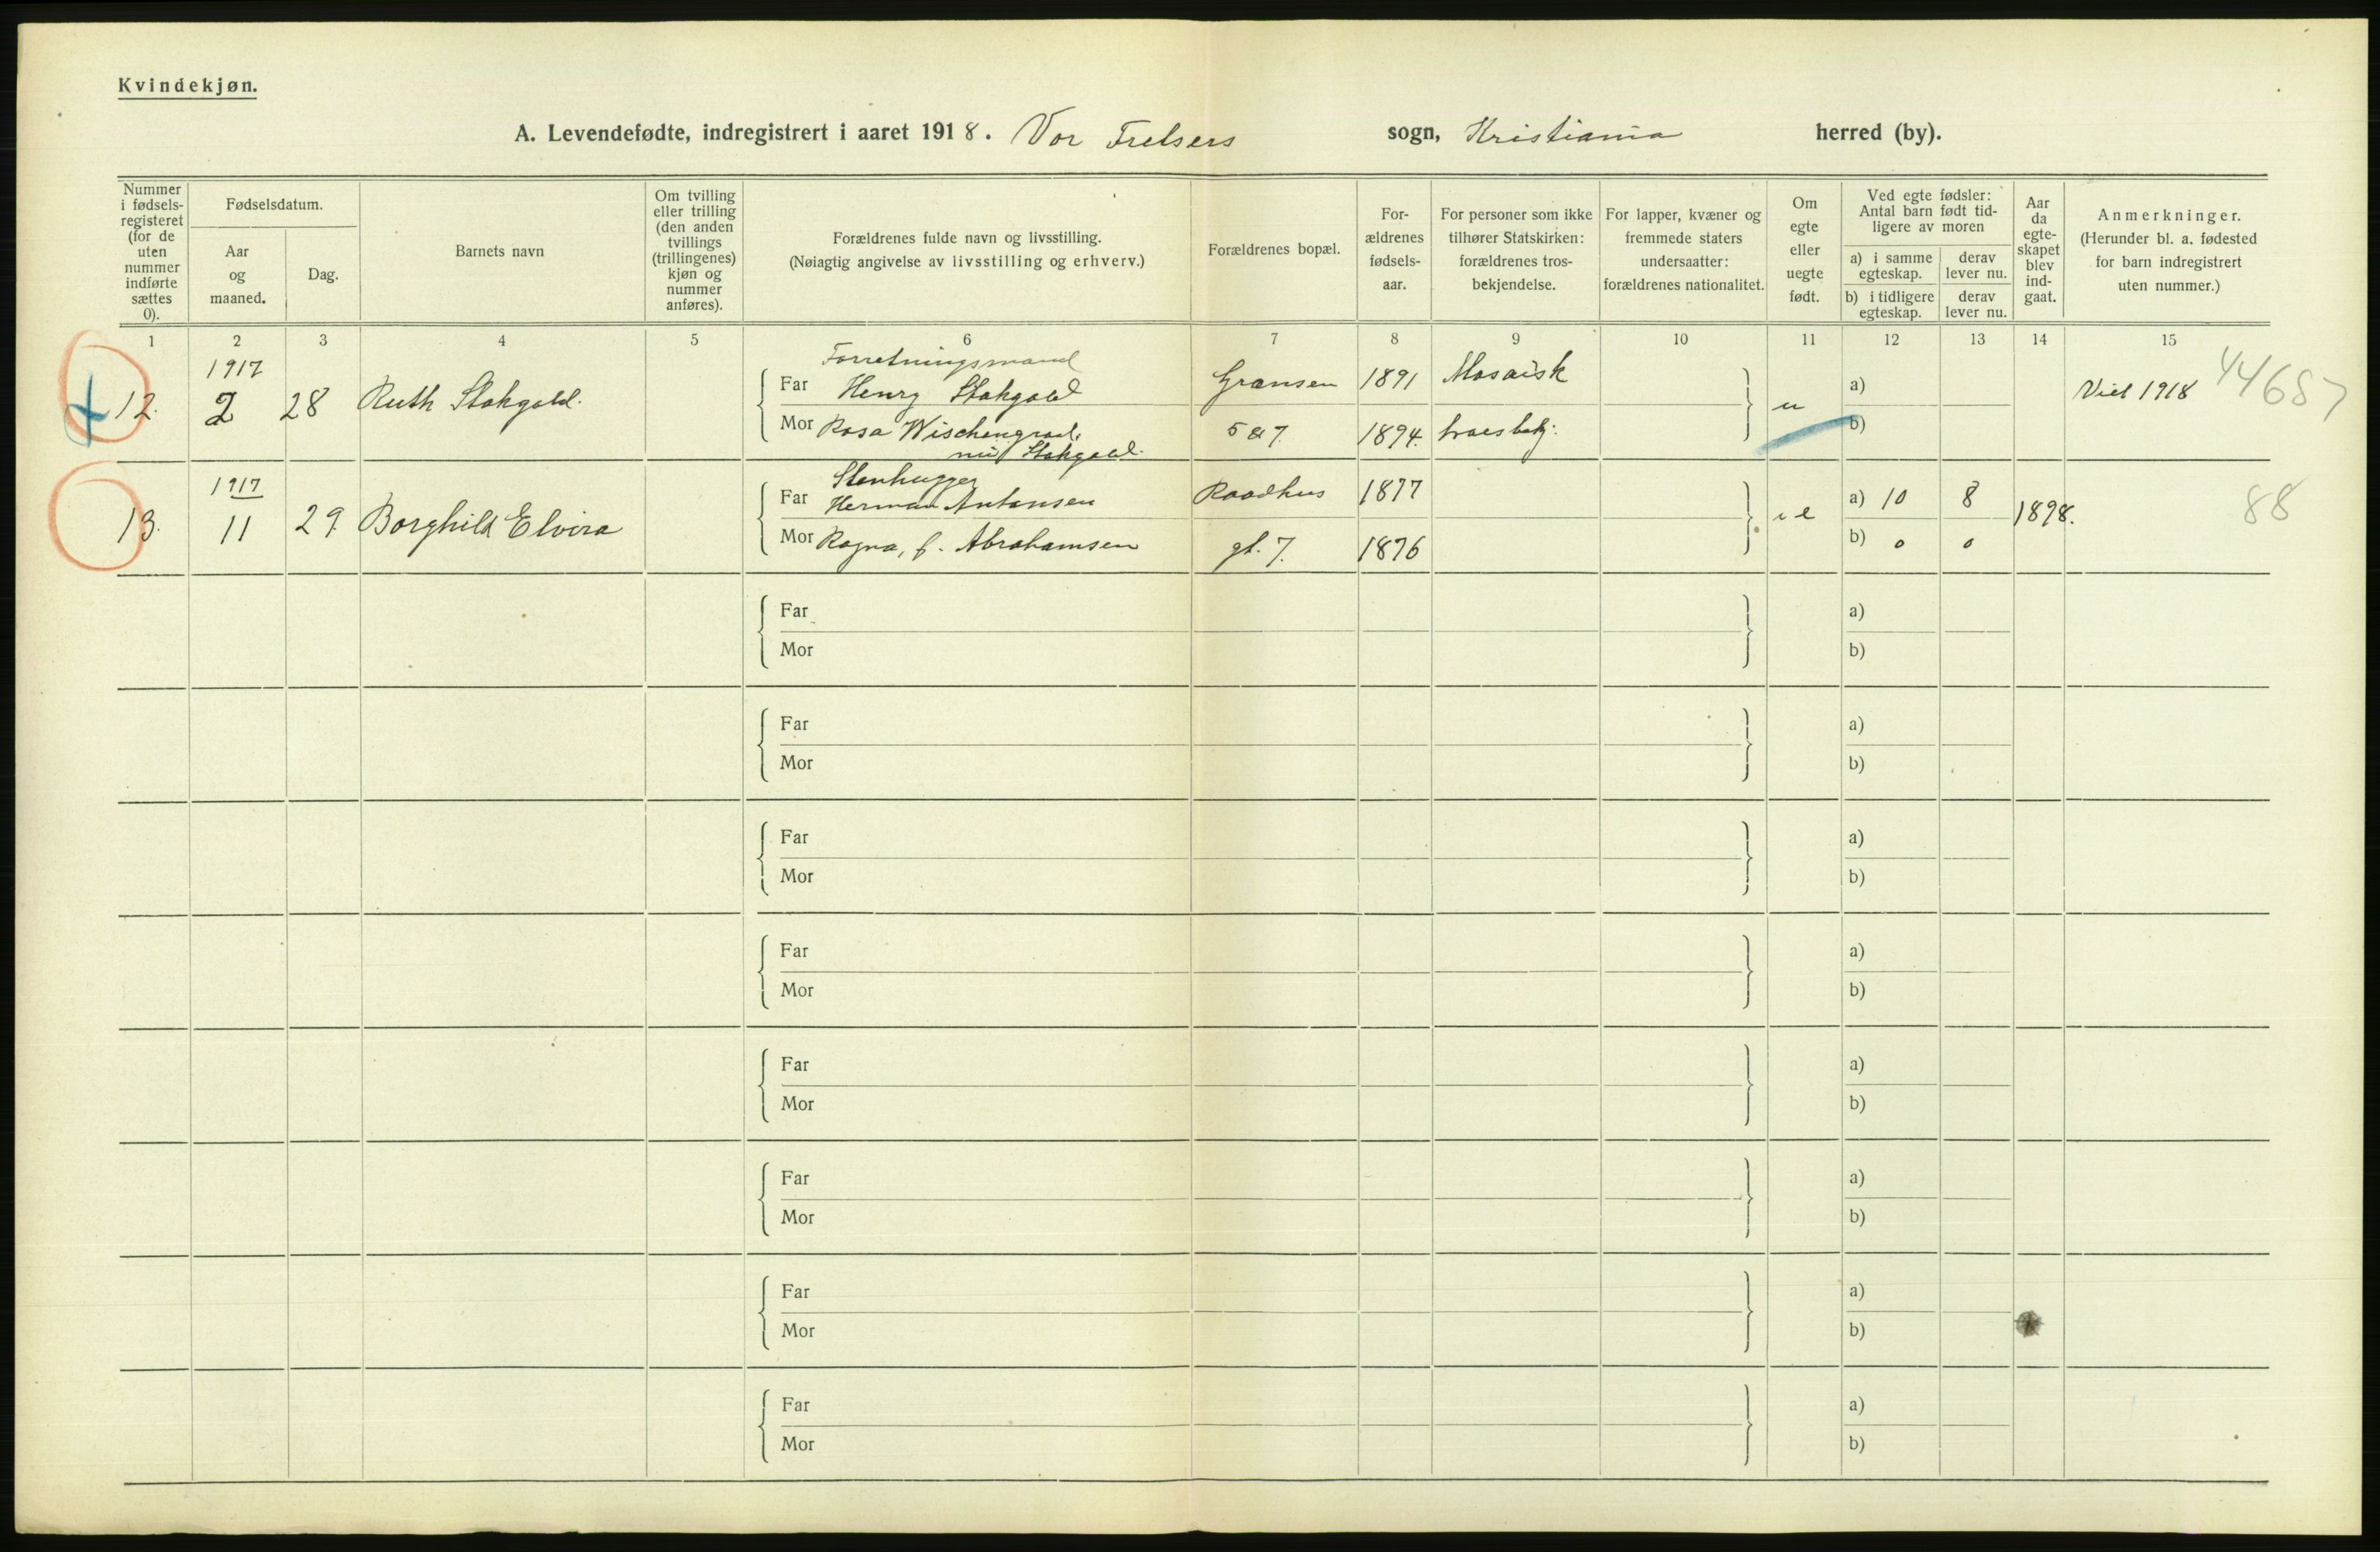 Kvindekjøn.
A. Levendefødte, indregistrert i aaret 1918. Vor Frelsers sogn, Kristiania herred (by).
Nummer i fødsels-registeret (for de uten nummer indførte sættes 0).
Fødselsdatum.
Aar og maaned.
Dag.
Barnets navn
Om tvilling eller trilling (den anden tvillings (trillingenes) kjøn og nummer anføres).
Forældrenes fulde navn og livsstilling.
(Nøiagtig angivelse av livsstilling og erhverv.)
Forældrenes bopæl.
For-ældrenes fødsels-aar.
For personer som ikke tilhører Statskirken: forældrenes tros-bekjendelse.
For lapper, kvæner og fremmede staters undersaatter: forældrenes nationalitet.
Om egte eller uegte født.
Ved egte fødsler: Antal barn født tid-ligere av moren
a) i samme egteskap.
derav lever nu.
b) i tidligere egteskap.
derav lever nu.
Aar da egte-skapet blev ind-gaat.
Anmerkninger.
(Herunder bl. a. fødested for barn indregistrert uten nummer.)
1 2 3 4 5 6 7 8 9 10 11 12 13 14 15
1917 Forretningsmand
12. 2 28 Ruth Stokgold. Far Henry Stokgold Grænsen 1891 Mosaisk u a) Viel 1918 44687
Mor Rosa Wischengrad, 5 & 7. 1894. troesbekj: b)
nu Stokgold.
1917 Stenhugger
13. 11 29. Borghild Elvira Far Herman Antonsen Raadhus 1877 i e a) 10 8 1898. 88
Mor Ragna, f. Abrahamsen gt. 7. 1876 b) 0 0
Far a)
Mor b)
Far a)
Mor b)
Far a)
Mor b)
Far a)
Mor b)
Far a)
Mor b)
Far a)
Mor b)
Far a)
Mor b)
Far a)
Mor b)